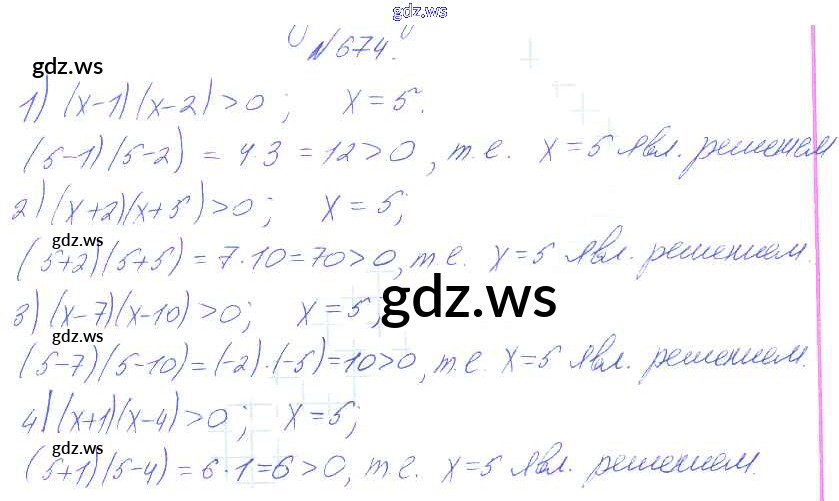 gdz.ws
№674.
gdz.ws
1) (x-1)(x-2)>0; x=5.
(5-1)(5-2) = 4·3 = 12>0, т.е. x=5 явл. решением
2) (x+2)(x+5)>0; x=5;
gdz.ws
(5+2)(5+5) = 7·10=70>0, т.е. x=5 явл. решением.
gdz.ws
3) (x-7)(x-10)>0; x=5;
gdz.ws
(5-7)(5-10)=(-2)·(-5)=10>0, т.е. x=5 явл. решением.
4) (x+1)(x-4)>0; x=5;
gdz.ws
(5+1)(5-4) = 6·1=6>0, т.е. x=5 явл. решением.